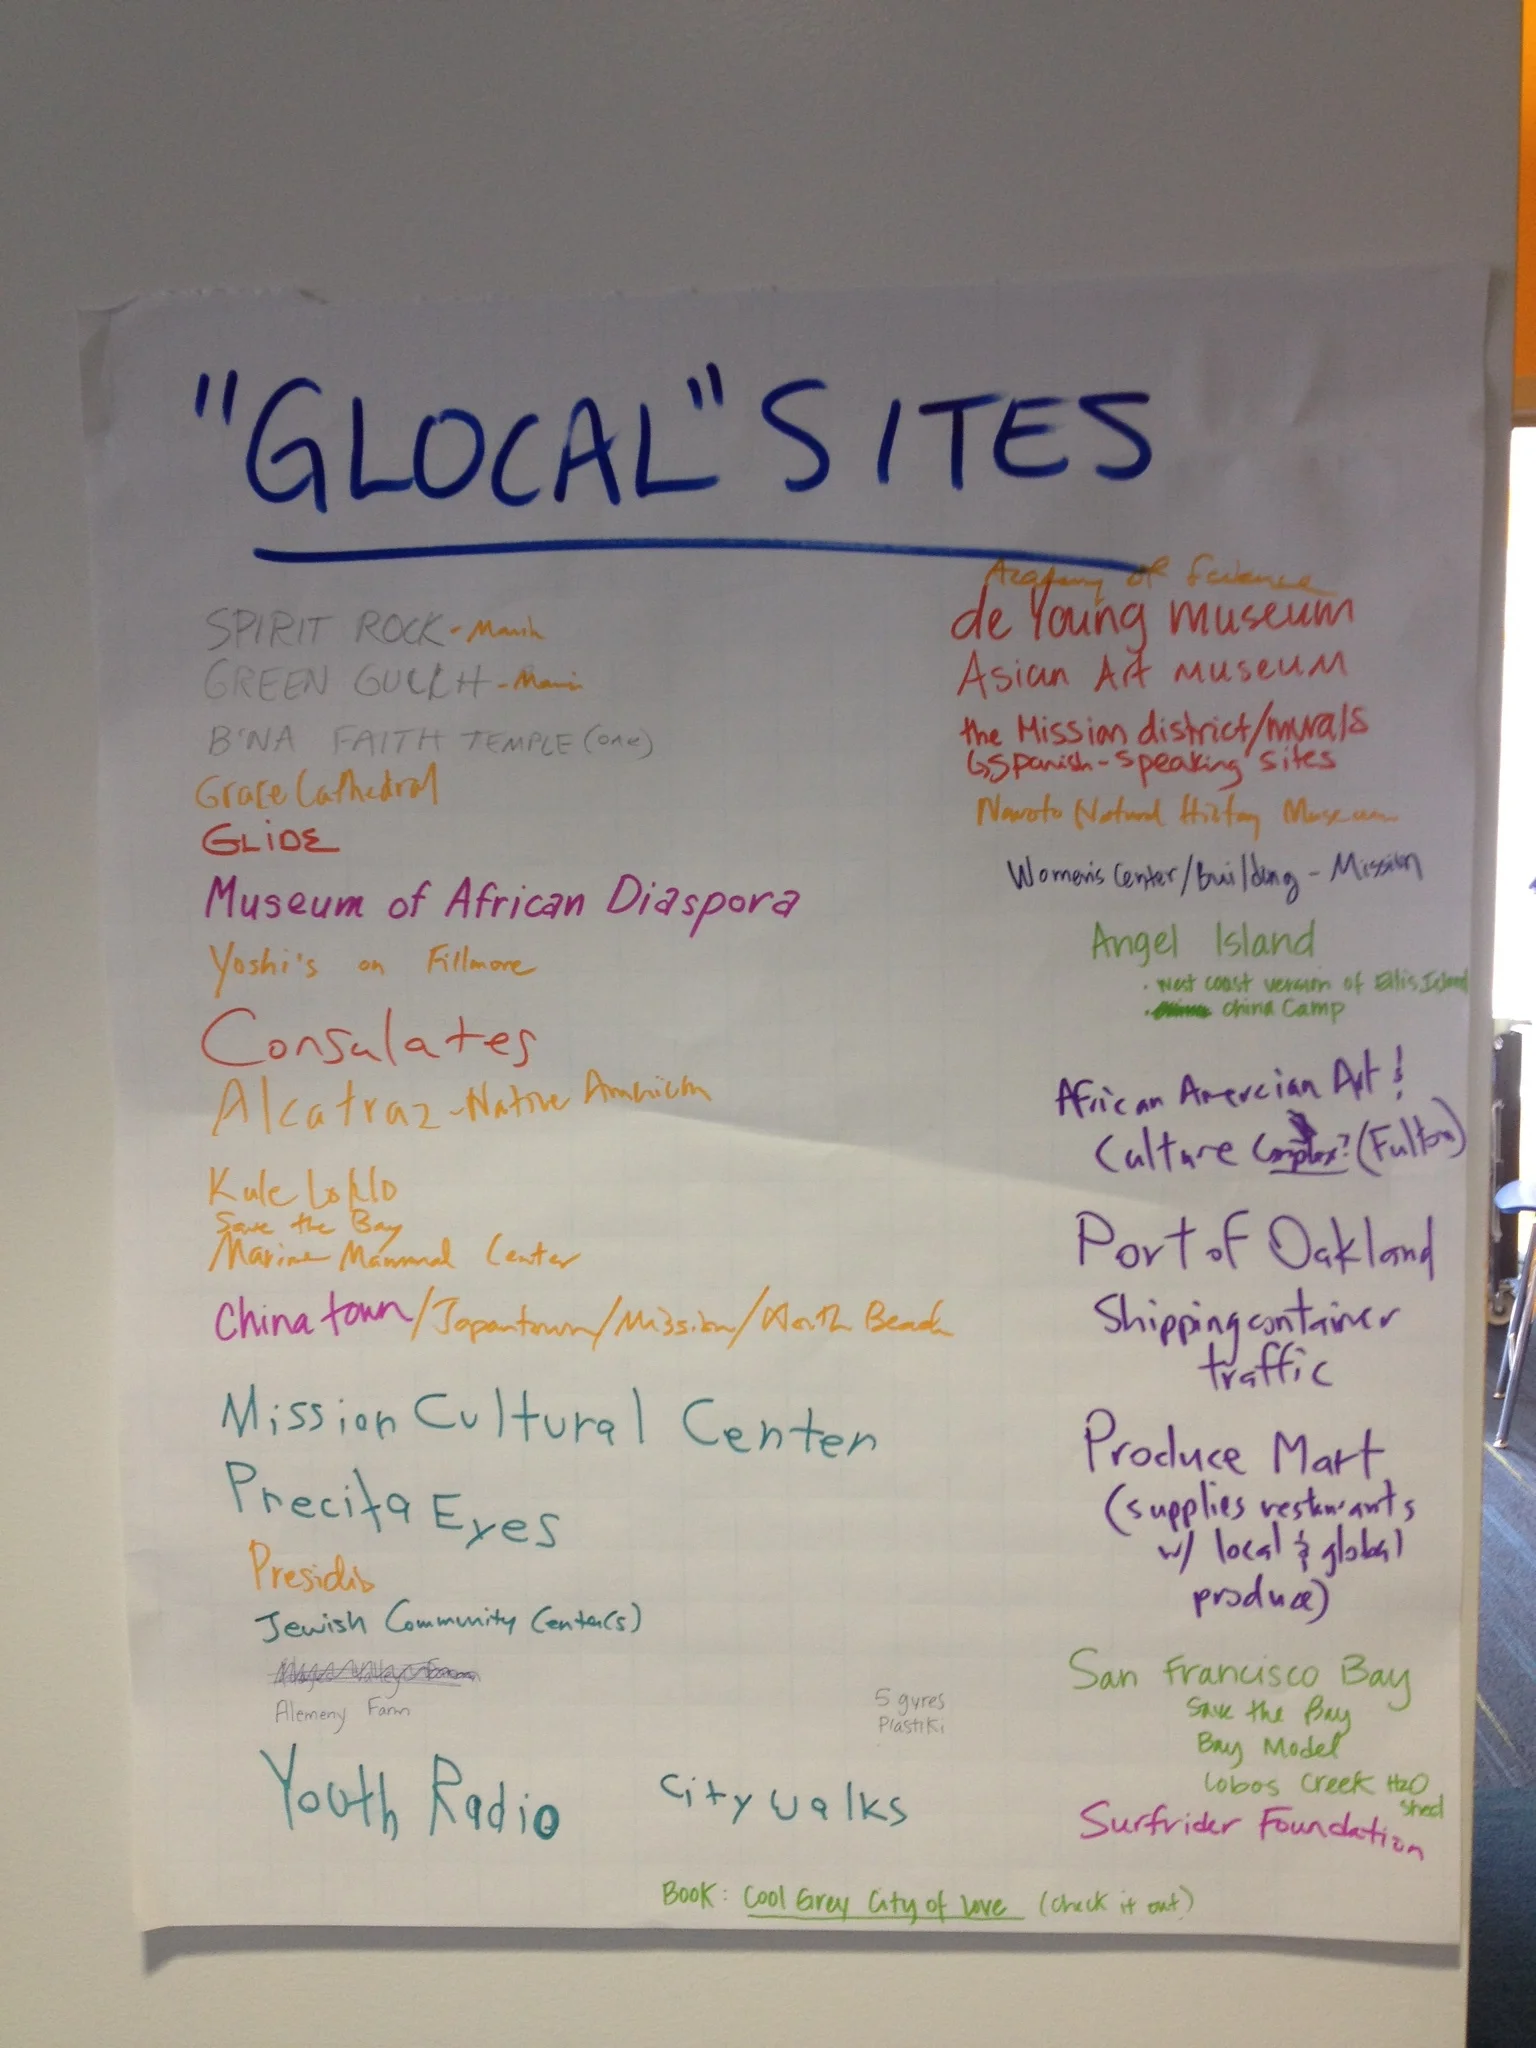 "GLOCAL" SITES
SPIRIT ROCK - Marin
GREEN GULCH - Marin
B'NA FAITH TEMPLE (one)
Grace Cathedral
GLIDE
Museum of African Diaspora
Yoshi's on Fillmore
Consulates
Alcatraz - Native American
Kule Loklo
Save the Bay
Marine Mammal Center
Chinatown/Japantown/Mission/North Beach
Mission Cultural Center
Precita Eyes
Presidio
Jewish Community Center(s)
Alemeny Farm
Youth Radio
5 gyres
Plastiki
City walks
Academy of Science
de Young Museum
Asian Art Museum
the Mission district/murals
Spanish-speaking sites
Novato Natural History Museum
Women's Center/Building - Mission
Angel Island
· West coast version of Ellis Island
· China Camp
African Amercian Art &
Culture Complex? (Fulton)
Port of Oakland
Shipping container
traffic
Produce Mart
(supplies restaurants
w/ local & global
produce)
San Francisco Bay
Save the Bay
Bay Model
Lobos Creek H2O
shed
Surfrider Foundation
BOOK: Cool Grey City of Love (check it out)